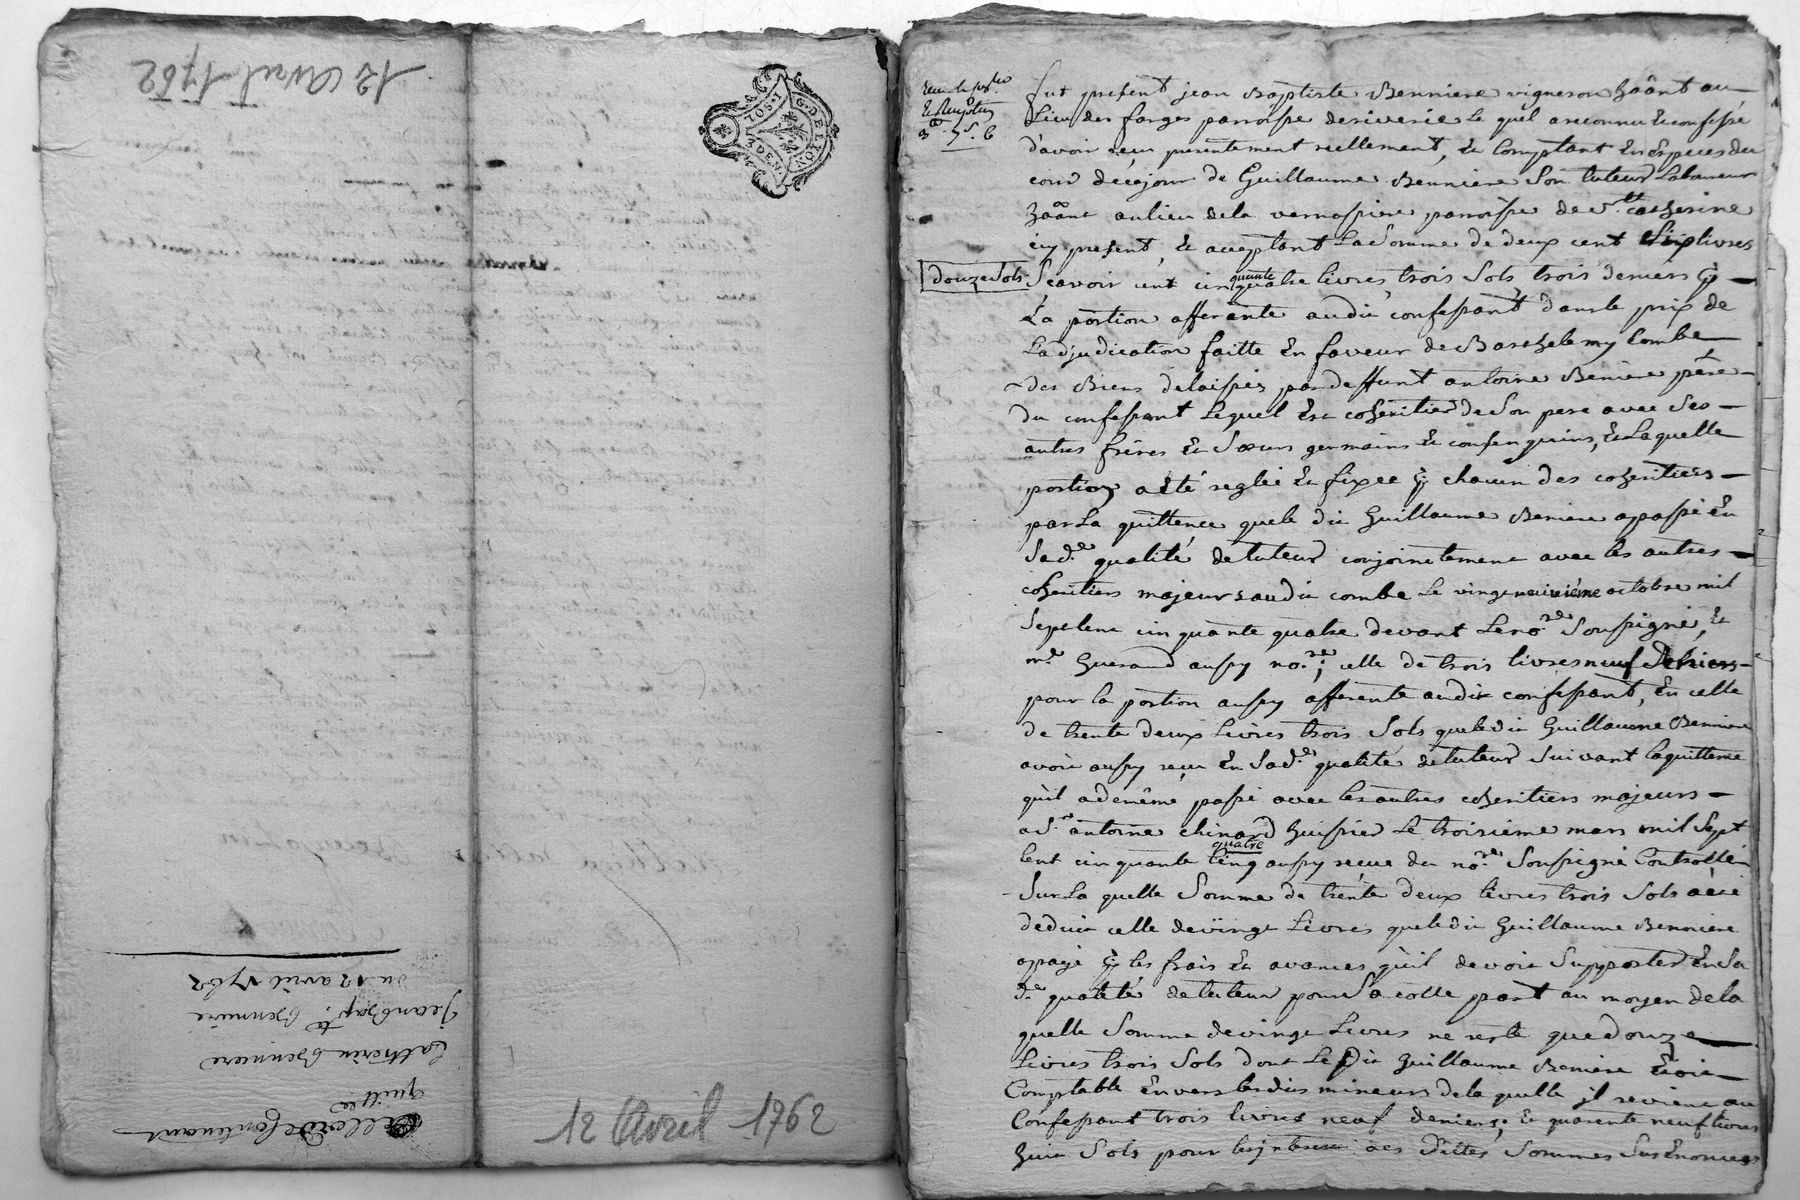 12 Avril 1762
G. DE LYON
du 12 avril 1762
jean Bap.te Benniere
Catherin Benniere
quitt.ce
12 Avril 1762
fut present jean Baptiste Benniere vigneron hâânt au
Lieu des farges parroisse deriverie le quel a reconnu & confessé
d'avoir reçu presentement reellement, Et Comptant En Especes du
cour de cejour de Guillaume Benniere Son tuteur Laboureur
hâânt aulieu dela vernassiere parroisse de s.tte catherine
icy present, Et acceptant La Somme de deux cent livres
douze Sols Scavoir cent cinquante quatre livres trois Sols trois deniers p
La portion afferante audit confessant dans le prix de
L'adjudication faitte En faveur de Barthelemy Combe
des Biens delaissés par deffunt antoine Beniere père
du confessant Lequel Est coheritier de Son pere avec Ses
autres frères Et Sœurs germains Et consenguins, Et Laquelle
portion a eté reglée Et fixée p chacun des coheritiers
par La quittence que le dit Guillaume Beniere a passé En
Sad.e qualité de tuteur conjointement avec les autres
coheritiers majeurs audit combe Le vingt neuvième octobre mil
Sept Cent cinquante quatre devant Le no.re Soussigné, Et
m.e Guerand aussy no.re; celle de trois livres neuf Deniers
pour la portion aussy afferente audit confessant, En celle
de trente deux Livres trois Sols que le dit Guillaume Benniere
avoit aussy reçu En Sad.e qualité de tuteur Suivant la quittence
qu'il a de même passé avec les autres coheritiers majeurs
ad.t antoine chinard huissier Le troisième mars mil Sept
Cent cinquante quatre cinq aussy reçue du no.re Soussigné Controllé
Sur La quelle Somme de trente deux livres trois Sols a été
deduit celle de vingt Livres que le dit Guillaume Benniere
a payé p les frais Et avances qu'il devoit Supporter En Sa
d.e qualité de tuteur pour Sa cotte part au moyen de la
quelle Somme de vingt Livres ne reste que douze
Livres trois Sols dont Le dit Guillaume Beniere Etoit
Comptable Envers lesdits mineurs de la quelle il revient au
Confessant trois livres neuf deniers; Et quarente neuf livres
huit Sols pour les interets des Dittes Sommes Sus Enoncées